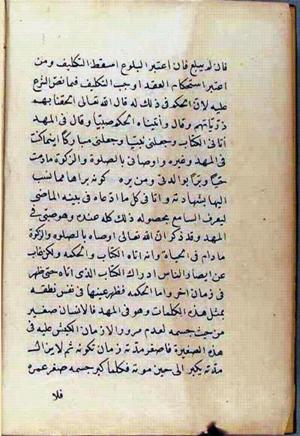 قال لم يبلغ فان اعتبر البلوغ اسقط التكليف ومن
اعتبر استحكام العقد اوجب التكليف فما نص الشرع
عليه لان الحكم في ذلك له قال الله تعالى الحقنا بهم
ذرياتهم وقال وآتيناه الحكم صبيا وقال في المهد
آتاني الكتاب وجعلني نبيا وجعلني مباركا اينما كنت
في المهد وغيره واوصاني بالصلوة والزكوة ما دمت
حيا وبرا بوالدتي ومن بره كونه براها مما نسب
اليها بشهادته واتى في كل ما ادعاه في بنية الماضي
ليعرف السامع بحصول ذلك كله عنده وهو صبي في
المهد وقد ذكر ان الله تعالى اوصاه بالصلوة والزكوة
ما دام في الحياة وانه اتاه الكتاب والحكمة ولكن غاب
عن ابصار الناس ادراك الكتاب الذي اتاه حتى ظهر
في زمان آخر واما الحكمة فظهر عينها في نفس نطقه
بمثل هذه الكلمات وهو في المهد فالانسان صغير
من حيث جسمه لعدم مرور الازمان الكثير عليه في
هذه الصغيرة فاصغر مدته زمان تكونه ثم لا يزال
مدته يكبر الى حين موته فكلما كبر جسمه صغر عمره
فلا